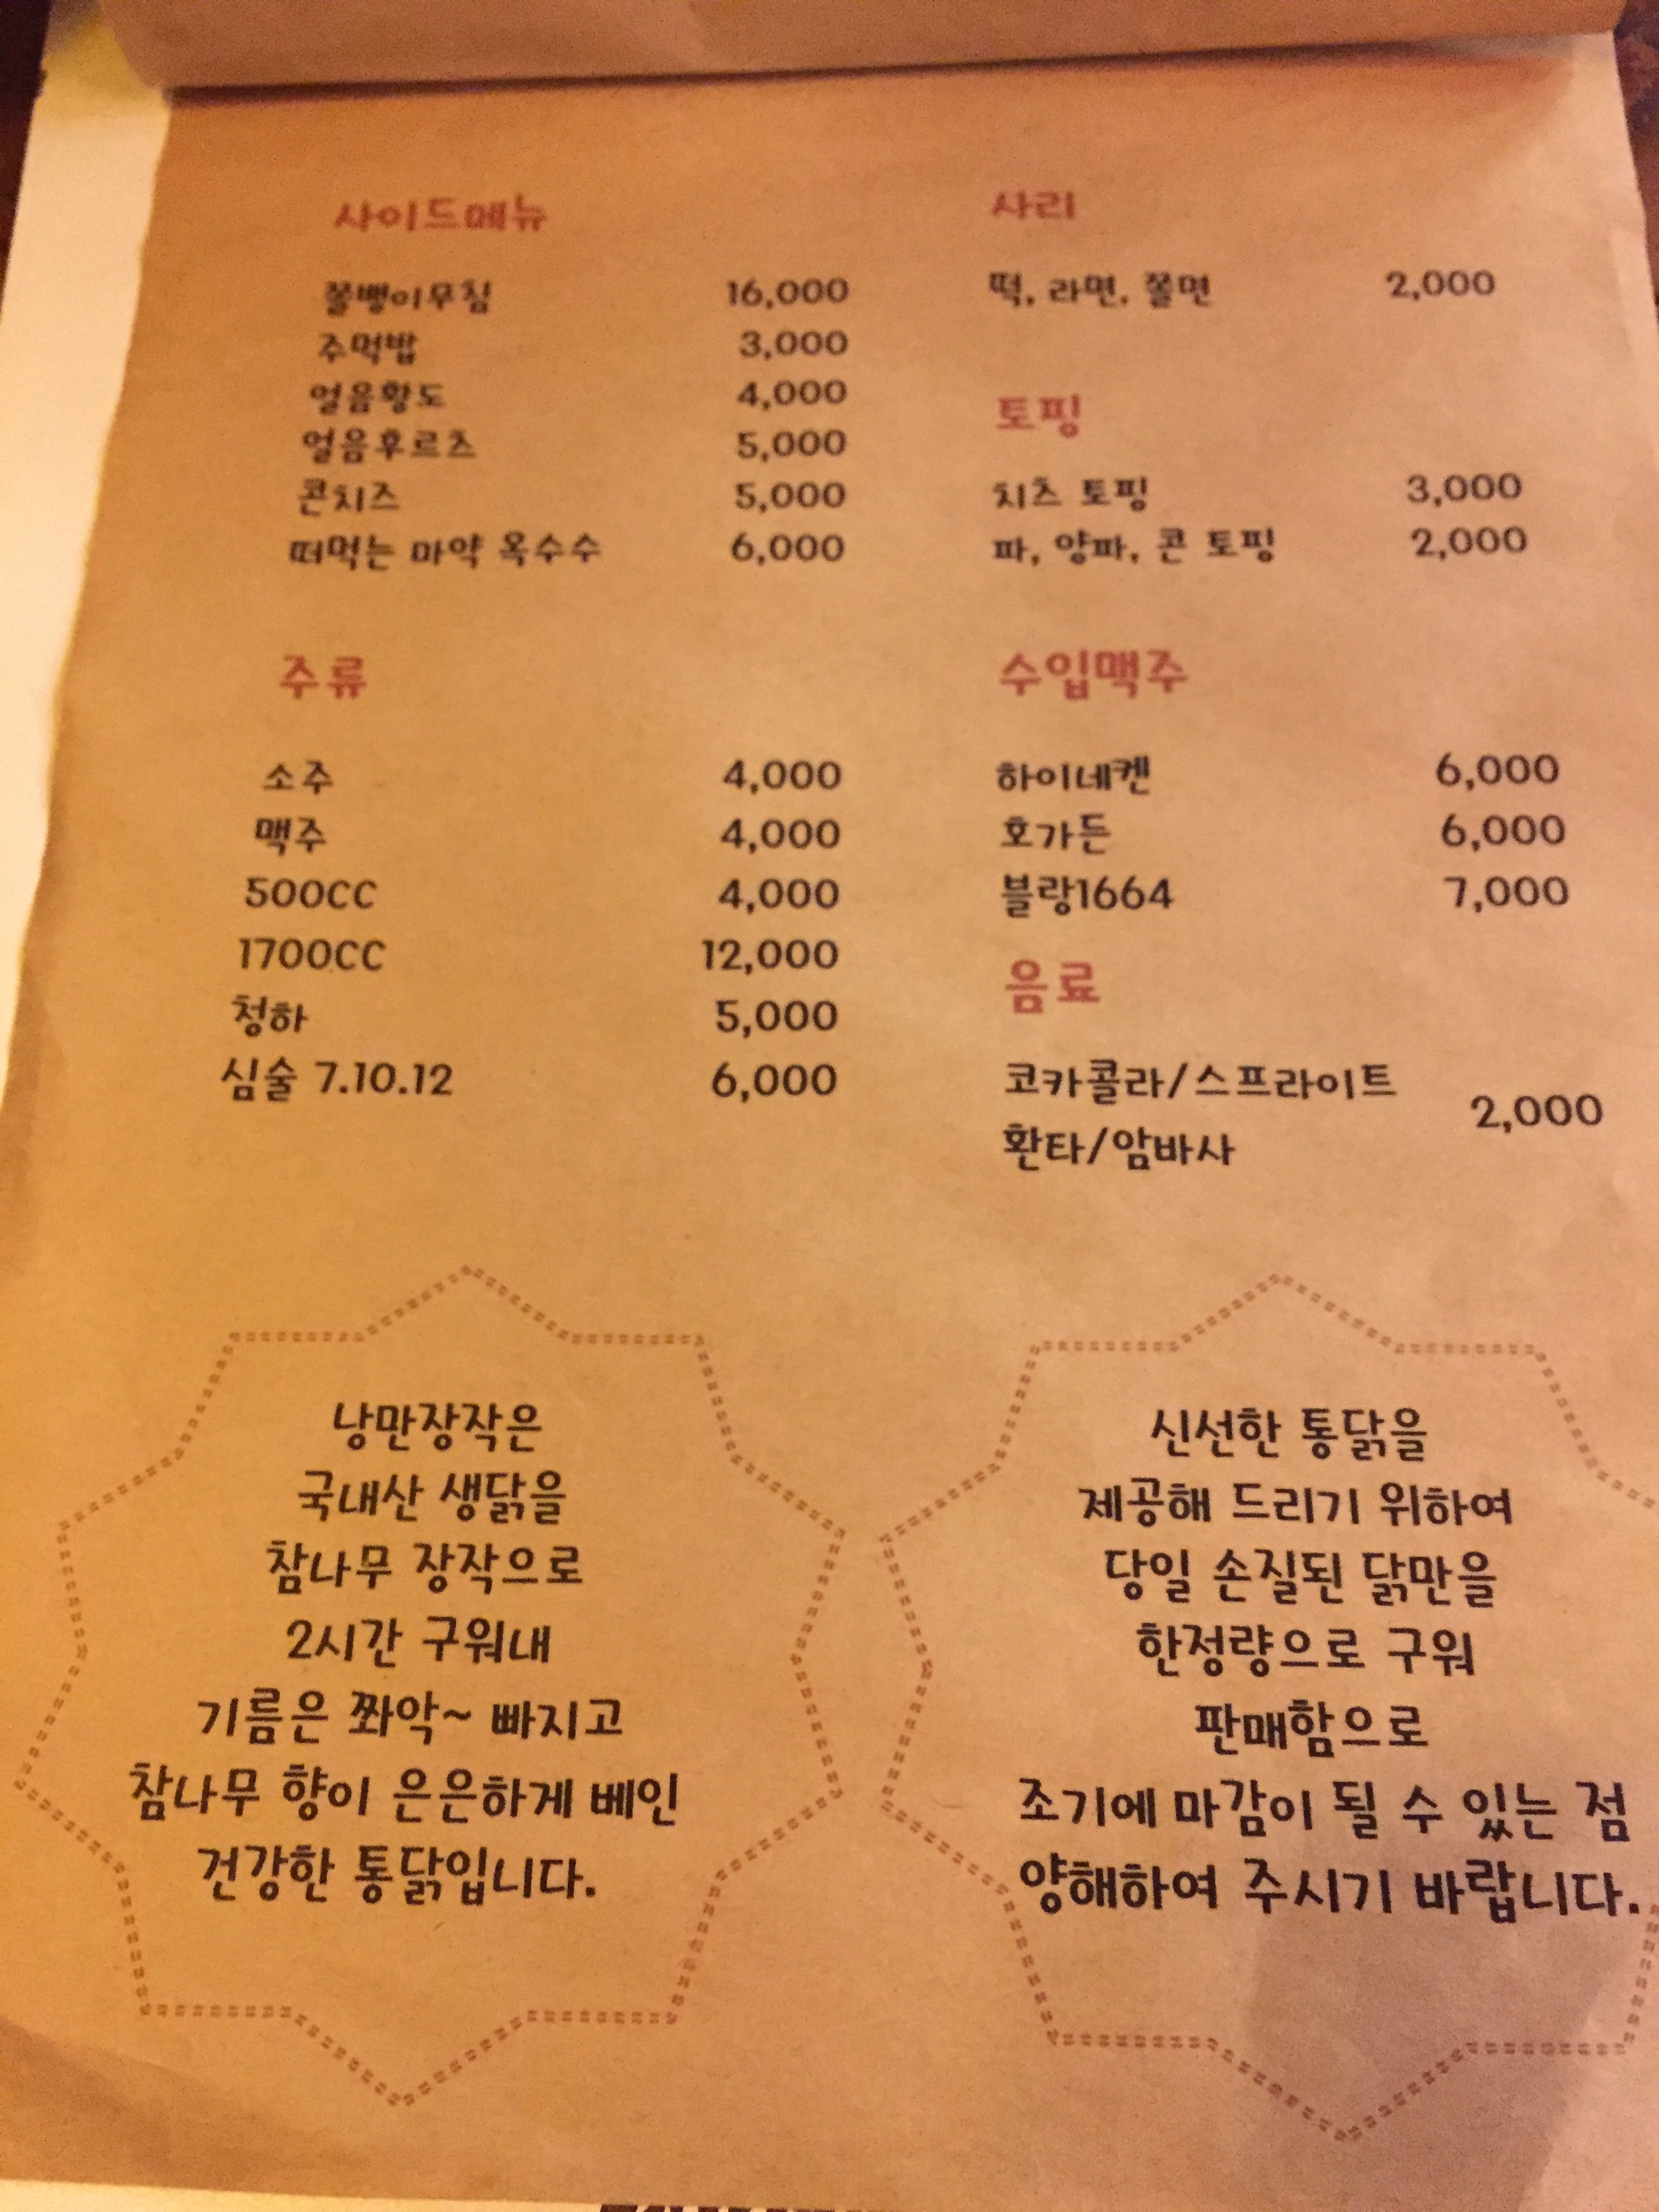 사이드메뉴
쫄뱅이무침 16,000
주먹밥 3,000
얼음황도 4,000
얼음후르츠 5,000
콘치즈 5,000
떠먹는 마약 옥수수 6,000
주류
소주 4,000
맥주 4,000
500CC 4,000
1700CC 12,000
청하 5,000
심술 7.10.12 6,000
사리
떡, 라면, 쫄면 2,000
토핑
치즈 토핑 3,000
파, 양파, 콘 토핑 2,000
수입맥주
하이네켄 6,000
호가든 6,000
블랑1664 7,000
음료
코카콜라/스프라이트
환타/암바사 2,000
낭만장작은
국내산 생닭을
참나무 장작으로
2시간 구워내
기름은 쫘악~ 빠지고
참나무 향이 은은하게 베인
건강한 통닭입니다.
신선한 통닭을
제공해 드리기 위하여
당일 손질된 닭만을
한정량으로 구워
판매함으로
조기에 마감이 될 수 있는 점
양해하여 주시기 바랍니다.